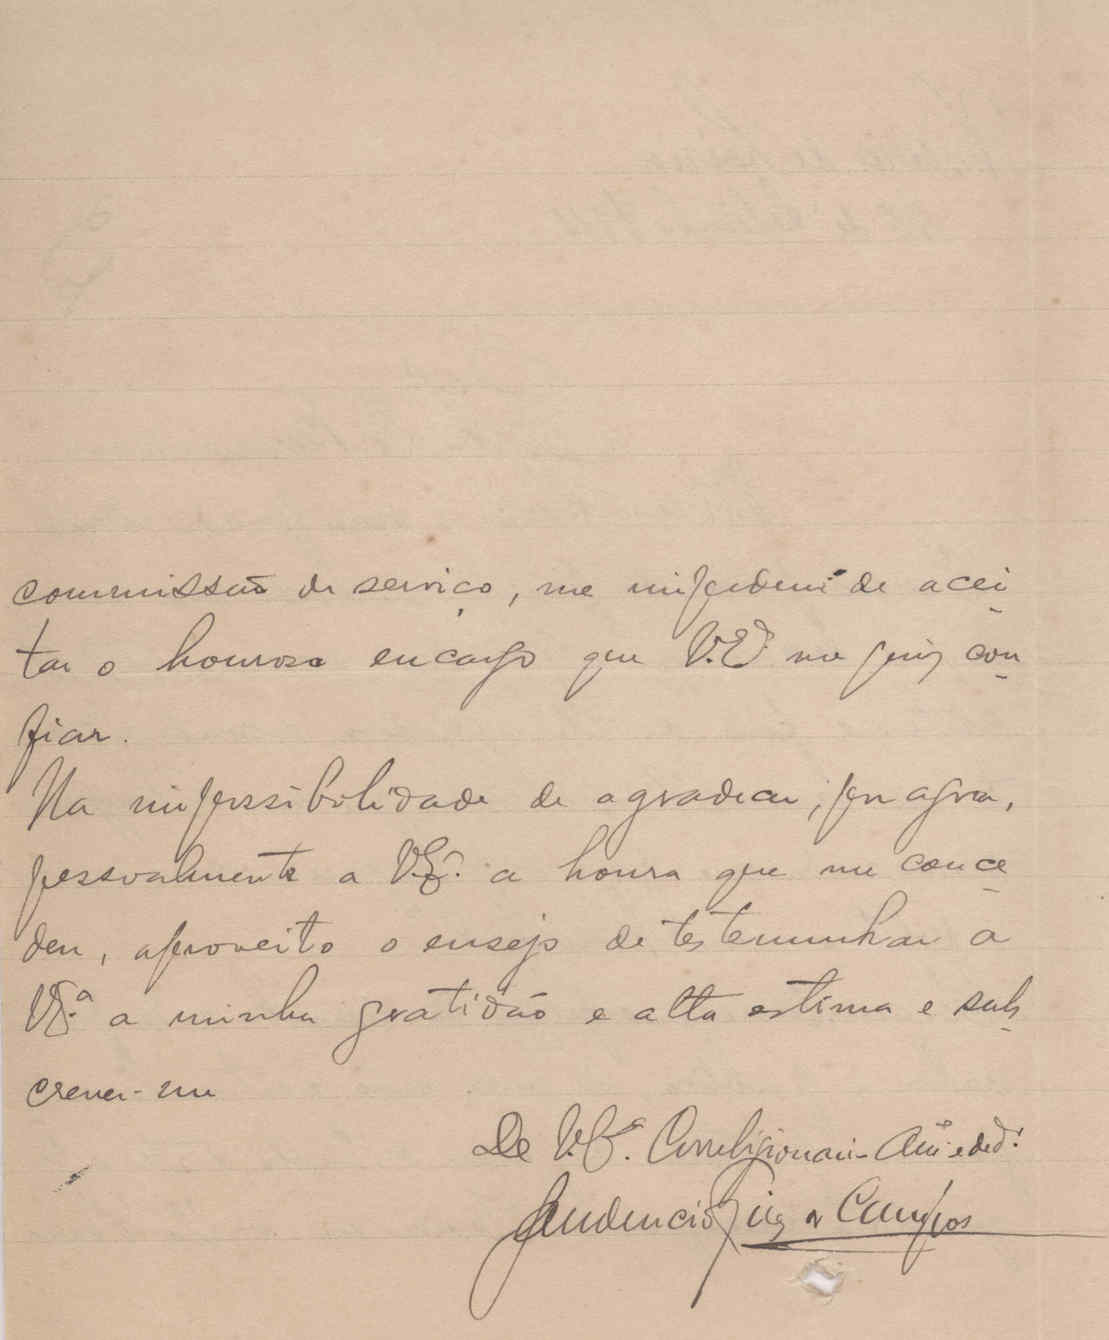 commissão de serviço, me impedem de acei-
tar o honroso encargo que V. Eª me quiz con-
fiar.
Na impossibilidade de agradecer, por agora,
pessoalmente a V. Eª. a honra que me conce-
deu, aproveito o ensejo de testemunhar a
V. Eª. a minha gratidão e alta estima e subs-
crever-me
De V. Eª. Correligionario Amº e dedº.
Campos